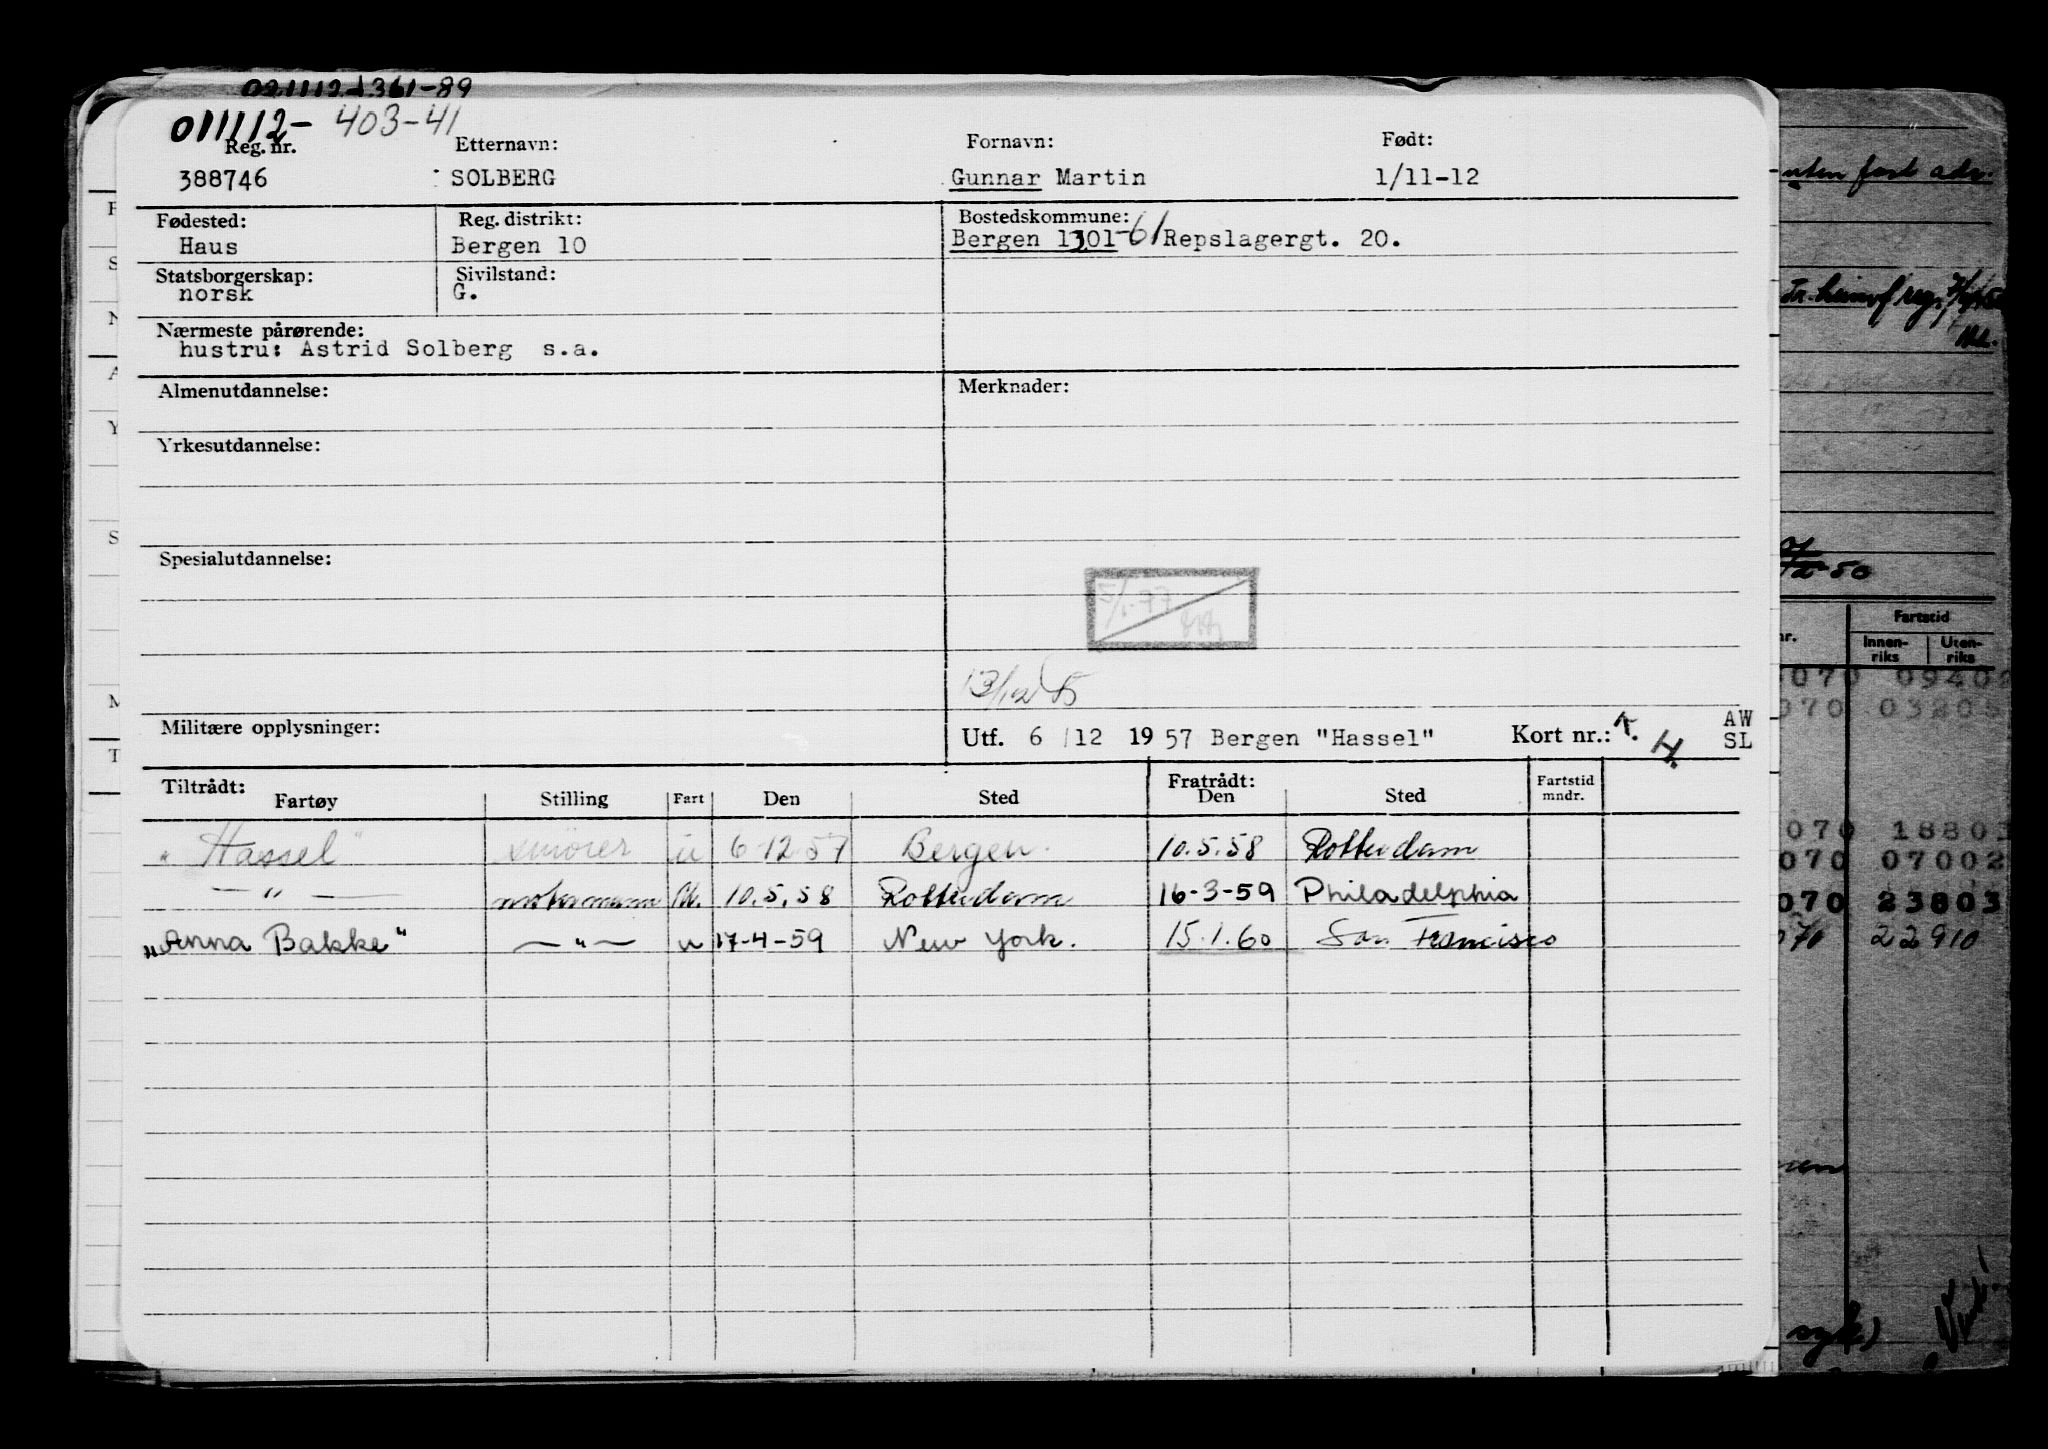 021112-361-89
011112- 403-41
Reg. nr. Etternavn: Fornavn: Født:
388746 SOLBERG Gunnar Martin 1/11-12
Fødested: Reg. distrikt: Bostedskommune:
Haus Bergen 10 Bergen 1301-61 Repslagergt. 20.
Statsborgerskap: Sivilstand:
norsk G.
Nærmeste pårørende:
hustru: Astrid Solberg s.a.
Almenutdannelse: Merknader:
Yrkesutdannelse:
Spesialutdannelse:
5/1-77
13/12 85
Militære opplysninger: Utf. 6 /12 19 57 Bergen "Hassel" Kort nr.: 1. H. AW SL
Tiltrådt: Fratrådt:
Fartøy Stilling Fart Den Sted Den Sted Fartstid mndr.
"Hassel" smører u 6-12-57 Bergen. 10.5.58 Rotterdam
— " — motormann 10.5.58 Rotterdam 16-3-59 Philadelphia
"Anna Bakke" — " — u 17-4-59 New York. 15.1.60 San Francisco
uten fast adr.
50
Fartstid
nr. Innenriks Utenriks
070 09402
070 03205
070 18803
070 07002
070 23803
70 22910
syk)